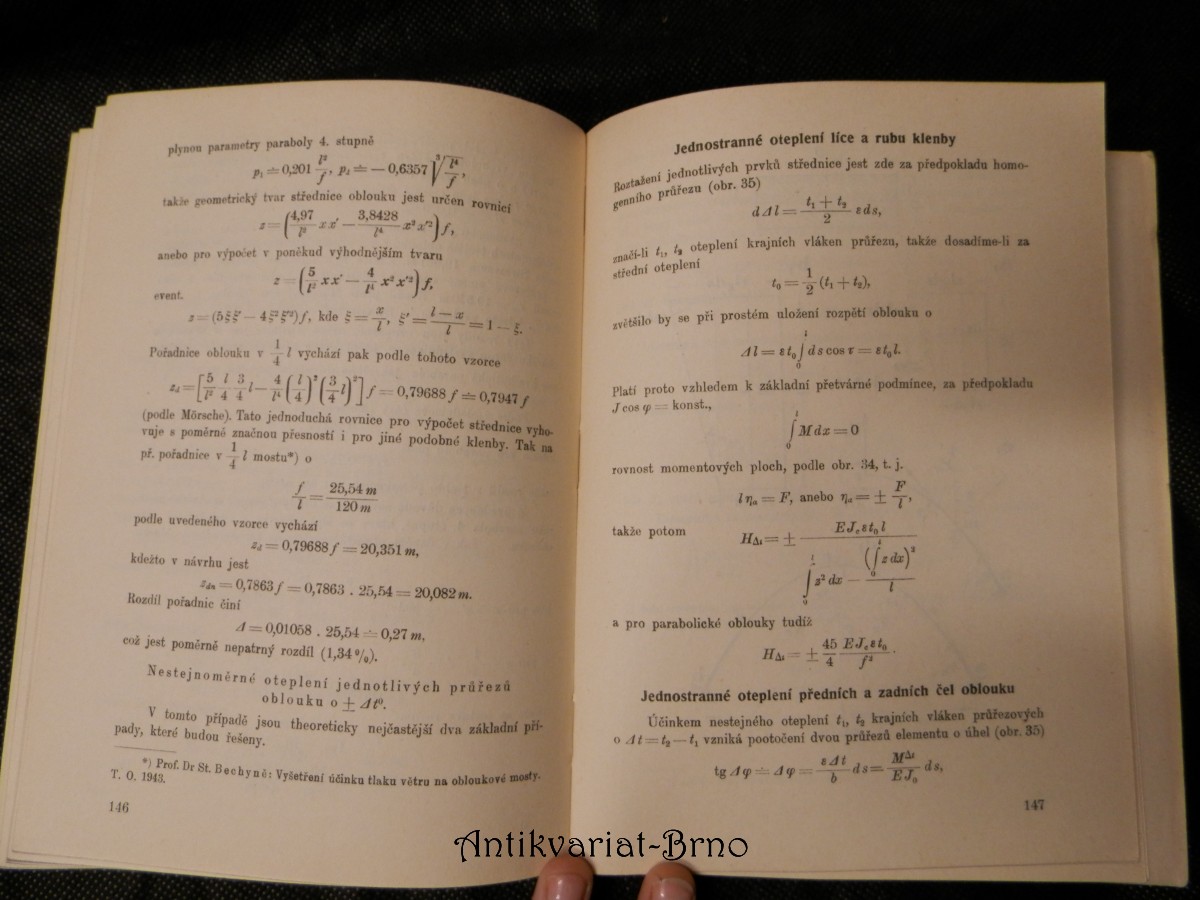 plynou parametry paraboly 4. stupně
p₁ ≐ 0,201 l²/f, p₂ ≐ — 0,6357 ∛(l⁴/f),
takže geometrický tvar střednice oblouku jest určen rovnicí
z = (4,97/l² x x′ — 3,8428/l⁴ x² x′²) f,
anebo pro výpočet v poněkud výhodnějším tvaru
z = (5/l² x x′ — 4/l⁴ x² x′²) f,
event.
z = (5 ξ ξ′ — 4 ξ² ξ′²) f, kde ξ = x/l, ξ′ = (l — x)/l = 1 — ξ.
Pořadnice oblouku v 1/4 l vychází pak podle tohoto vzorce
= [5/l² l/4 3/4 l — 4/l⁴ (l/4)² (3/4 l)²] f = 0,79688 f ≐ 0,7947 f
(podle Mörsche). Tato jednoduchá rovnice pro výpočet střednice vyho-
vuje s poměrně značnou přesností i pro jiné podobné klenby. Tak na
př. pořadnice v 1/4 l mostu*) o
f/l = 25,54 m/120 m
podle uvedeného vzorce vychází
= 0,79688 f = 20,351 m,
kdežto v návrhu jest
= 0,7863 f = 0,7863 . 25,54 = 20,082 m.
Rozdíl pořadnic činí
Δ = 0,01058 . 25,54 ≐ 0,27 m,
což jest poměrně nepatrný rozdíl (1,34 %).
Nestejnoměrné oteplení jednotlivých průřezů
oblouku o ± Δt⁰.
V tomto případě jsou theoreticky nejčastější dva základní pří-
pady, které budou řešeny.
*) Prof. Dr St. Bechyně: Vyšetření účinku tlaku větru na obloukové mosty.
T. O. 1943.
146
Jednostranné oteplení líce a rubu klenby
Roztažení jednotlivých prvků střednice jest zde za předpokladu homo-
genního průřezu (obr. 35)
d Δl = (t₁ + t₂)/2 ε ds,
značí-li t₁, t₂ oteplení krajních vláken průřezu, takže dosadíme-li za
střední oteplení
t₀ = 1/2 (t₁ + t₂),
zvětšilo by se při prostém uložení rozpětí oblouku o
Δl = ε t₀ ∫₀ˡ ds cos τ = ε t₀ l.
Platí proto vzhledem k základní přetvárné podmínce, za předpokladu
J cos φ = konst.,
∫₀ˡ M dx = 0
rovnost momentových ploch, podle obr. 34, t. j.
l ηₐ = F, anebo ηₐ = ± F/l,
takže potom H_Δt = ± E J_c ε t₀ l / (∫₀ˡ z² dx — (∫₀ˡ z dx)²/l)
a pro parabolické oblouky tudíž
H_Δt = ± 45/4 E J_c ε t₀/f² .
Jednostranné oteplení předních a zadních čel oblouku
Účinkem nestejného oteplení t₁, t₂ krajních vláken průřezových
o Δt = t₂ — t₁ vzniká pootočení dvou průřezů elementu o úhel (obr. 35)
tg Δφ ≐ Δφ = ε Δt/b ds = M^Δt/E J₀ ds,
147
Antikvariat-Brno